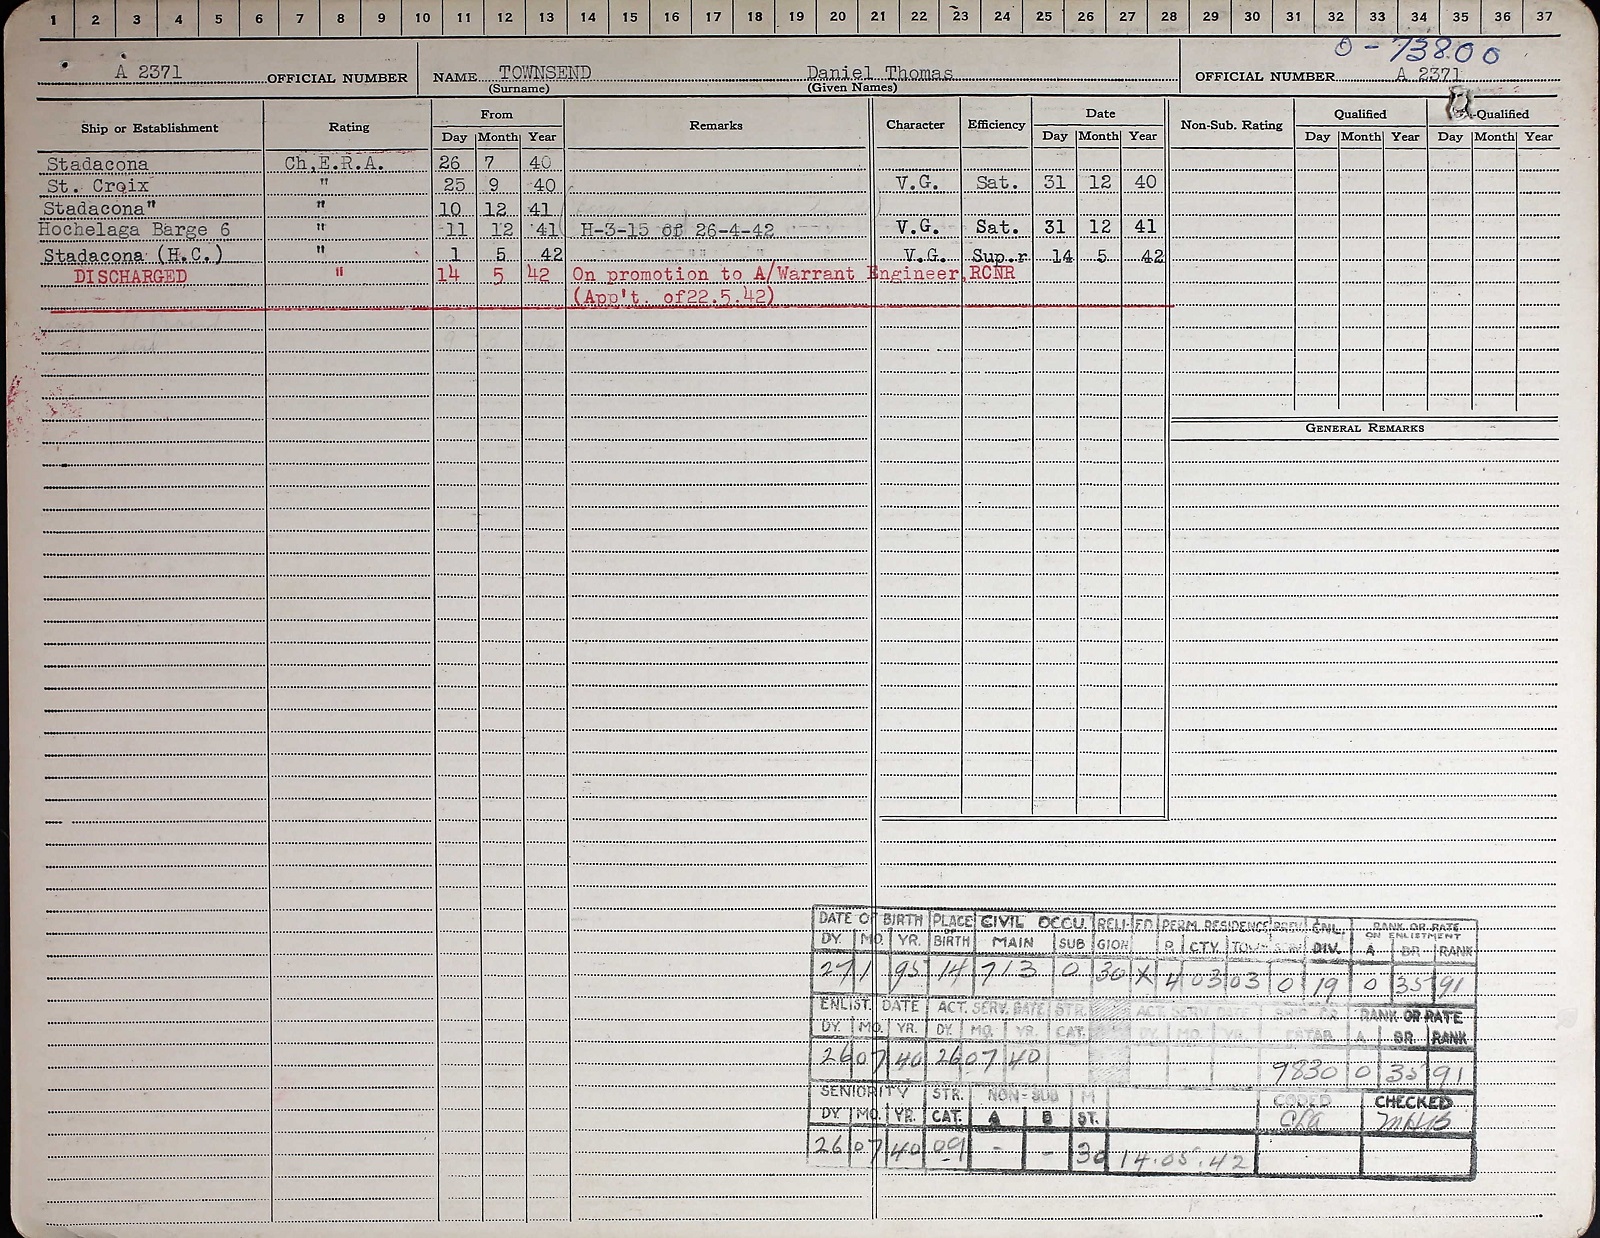 1 2 3 4 5 6 7 8 9 10 11 12 13 14 15 16 17 18 19 20 21 22 23 24 25 26 27 28 29 30 31 32 33 34 35 36 37
O-73800
A 2371 OFFICIAL NUMBER NAME TOWNSEND Daniel Thomas OFFICIAL NUMBER A 2371
(Surname) (Given Names)
Ship or Establishment Rating From Remarks Character Efficiency Date Non-Sub. Rating Qualified Qualified
Day Month Year Day Month Year Day Month Year Day Month Year
Stadacona Ch.E.R.A. 26 7 40
St. Croix " 25 9 40 V.G. Sat. 31 12 40
Stadacona" " 10 12 41
Hochelaga Barge 6 " 11 12 41 H-3-15 of 26-4-42 V.G. Sat. 31 12 41
Stadacona (H.C.) " 1 5 42 V.G. Sup.r 14 5 42
DISCHARGED " 14 5 42 On promotion to A/Warrant Engineer,RCNR
(App't. of22.5.42)
GENERAL REMARKS
DATE OF BIRTH PLACE OF BIRTH CIVIL OCCU. RELIGION ED PERM. RESIDENCE ENL. DIV. RANK OR RATE ON ENLISTMENT
DY. MO. YR. MAIN SUB R. CTY. TOWN A BR RANK
27 1 95 14 713 0 30 X 4 03 03 0 19 0 35 91
ENLIST. DATE ACT. SERV. DATE STR. ACT. SERV. DATE SHIP OR RANK OR RATE
DY. MO. YR. DY. MO. YR. CAT. DY. MO. YR. ESTAB. A BR. RANK
26 07 40 26 07 40 9830 0 35 91
SENIORITY STR. NON-SUB M CODED CHECKED
DY. MO. YR. CAT. A B ST.
26 07 40 091 - - 30 14.05.42